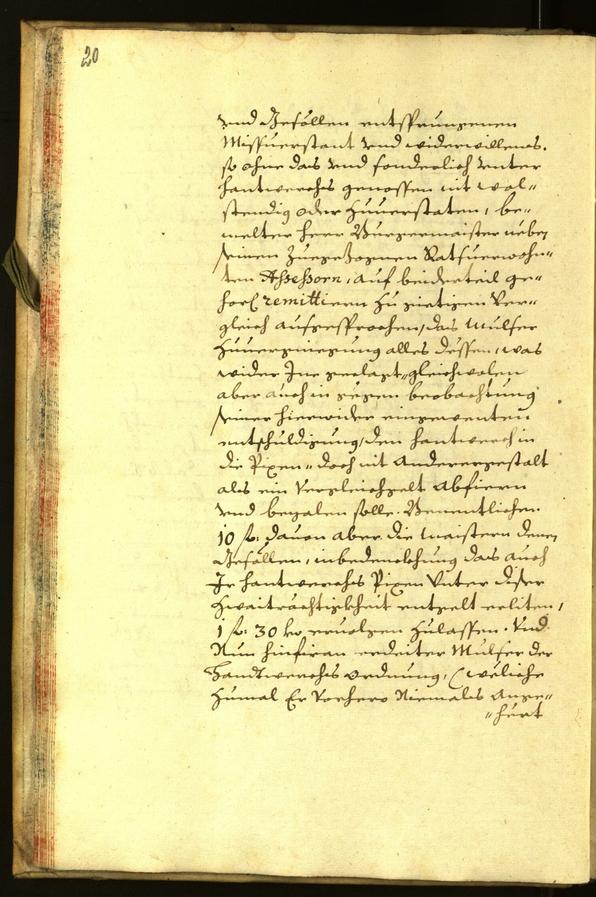 20
vnd Gesöllen entsprungenen
Missuerstant vnd widerwillens.
so ohne das vnd sonderlich vnter
hantwerchs genossen nit wol-
stendig oder zuuerstaten, be-
melter herr Burgermaister neben
seinen zuegezognen Ratsuerwohn-
ten Assessorn, auf beiderteil ge-
hör remittiern zu
gleich aufgesprochen, das Mulser
zuuergniegung alles dessen, was
wider Ine geclagt, gleichwolen
aber auch in gegen beobachtung
seiner hierwider eingewenten
entschuldigung, den hantwerch in
die Pixen, doch nit Anderergestalt
als ein Vergleichgelt Abfiern
vnd bezalen solle. Benentlichen
10 fl: dauon aber die Maistern denen
Gesöllen, in bedenckhung das auch
Ir hantwerchs Pixen vnter diser
Zwaiträchtigkheit entgelt erliten,
1 fl: 30 kr eruolgen zulassen. Vnd
Nun hinfiran erdeiter Mulser der
Handtwerchs ordnung, (weliche
zumal Er Vorhero Niemals Ange-
-hört